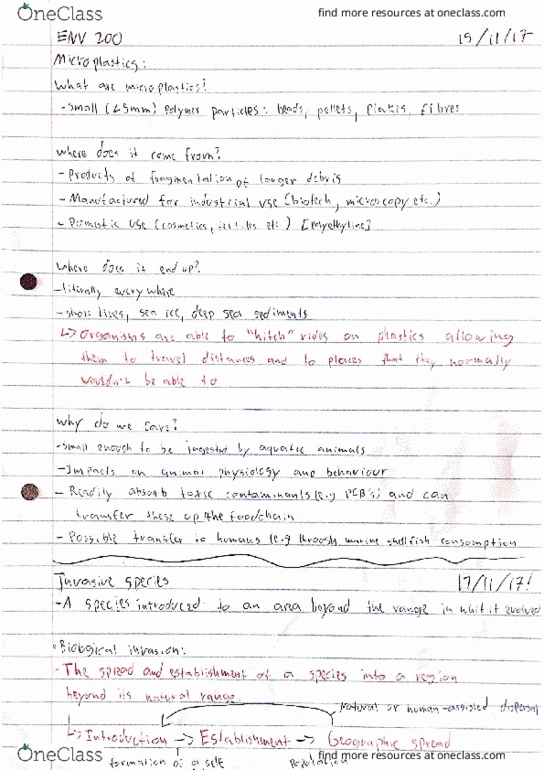 OneClass
find more resources at oneclass.com
ENV 200
15/11/17
Microplastics:
What are microplastics?
-Small (<5mm) polymer particles: beads, pellets, flakes, fibres
Where does it come from?
-Products of fragmentation of larger debris
-Manufactured for industrial use (biotech, microscopy etc.)
-Domestic use (cosmetics, textiles etc) [Polyethylene]
Where does it end up?
-literally everywhere
-shore lines, sea ice, deep sea sediments
↳Organisms are able to "hitch" rides on plastics allowing
them to travel distances and to places that they normally
wouldn't be able to
Why do we care?
-Small enough to be ingested by aquatic animals
-Impacts on animal physiology and behaviour
-Readily absorb toxic contaminants (e.g PCB's) and can
transfer these up the foodchain
-Possible transfer to humans (e.g through marine shellfish consumption
Invasive species
17/11/17
-A species introduced to an area beyond the range in it evolved
·Biological invasion:
-The spread and establishment of a species into a region
beyond its natural range
Natural or human-assisted dispersal
↳Introduction → Establishment → Geographic spread
formation of a self
Population
OneClass
find more resources at oneclass.com